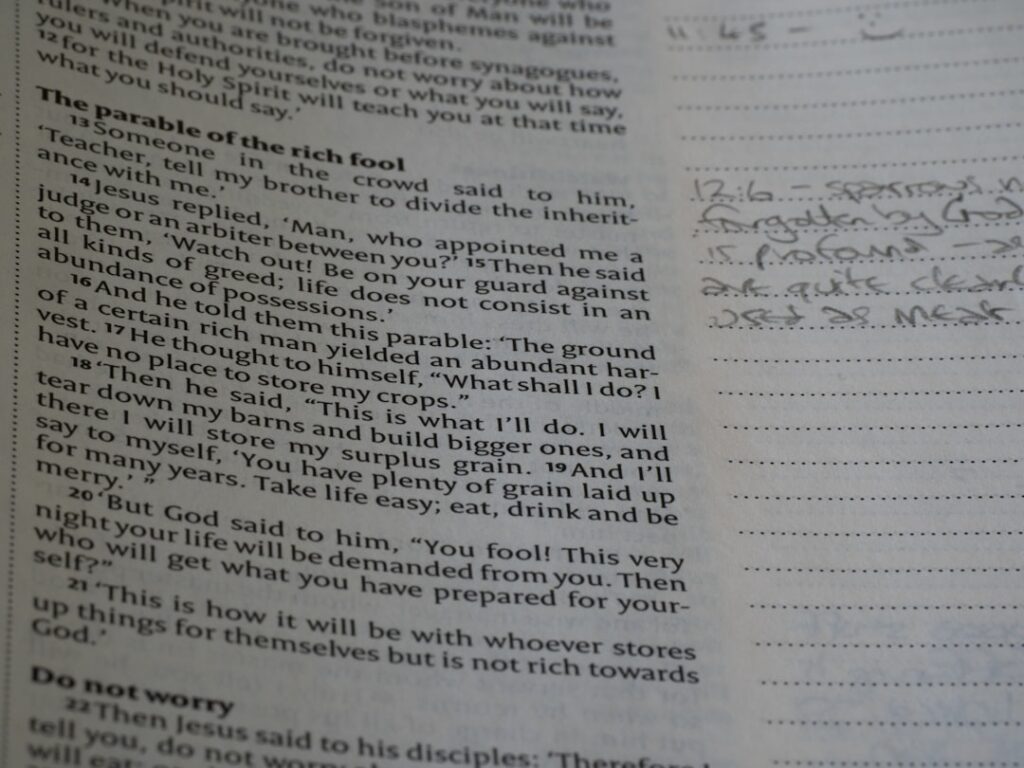 Son of Man will be
one who blasphemes against
Spirit will not be forgiven.
When you are brought before synagogues,
rulers and authorities, do not worry about how
you will defend yourselves or what you will say,
12 for the Holy Spirit will teach you at that time
what you should say.'
The parable of the rich fool
13 Someone in the crowd said to him,
'Teacher, tell my brother to divide the inherit-
ance with me.'
14 Jesus replied, 'Man, who appointed me a
judge or an arbiter between you?' 15 Then he said
to them, 'Watch out! Be on your guard against
all kinds of greed; life does not consist in an
abundance of possessions.'
16 And he told them this parable: 'The ground
of a certain rich man yielded an abundant har-
vest. 17 He thought to himself, "What shall I do? I
have no place to store my crops."
18 'Then he said, "This is what I'll do. I will
tear down my barns and build bigger ones, and
there I will store my surplus grain. 19 And I'll
say to myself, 'You have plenty of grain laid up
for many years. Take life easy; eat, drink and be
merry.' "
20 'But God said to him, "You fool! This very
night your life will be demanded from you. Then
who will get what you have prepared for your-
self?"
21 'This is how it will be with whoever stores
up things for themselves but is not rich towards
God.'
Do not worry
22 Then Jesus said to his disciples: 'Therefore I
tell you, do not worry
will eat;
11:45 -
12:6 - sparrows
forgotten by God
is profound -
are quite
used as meat